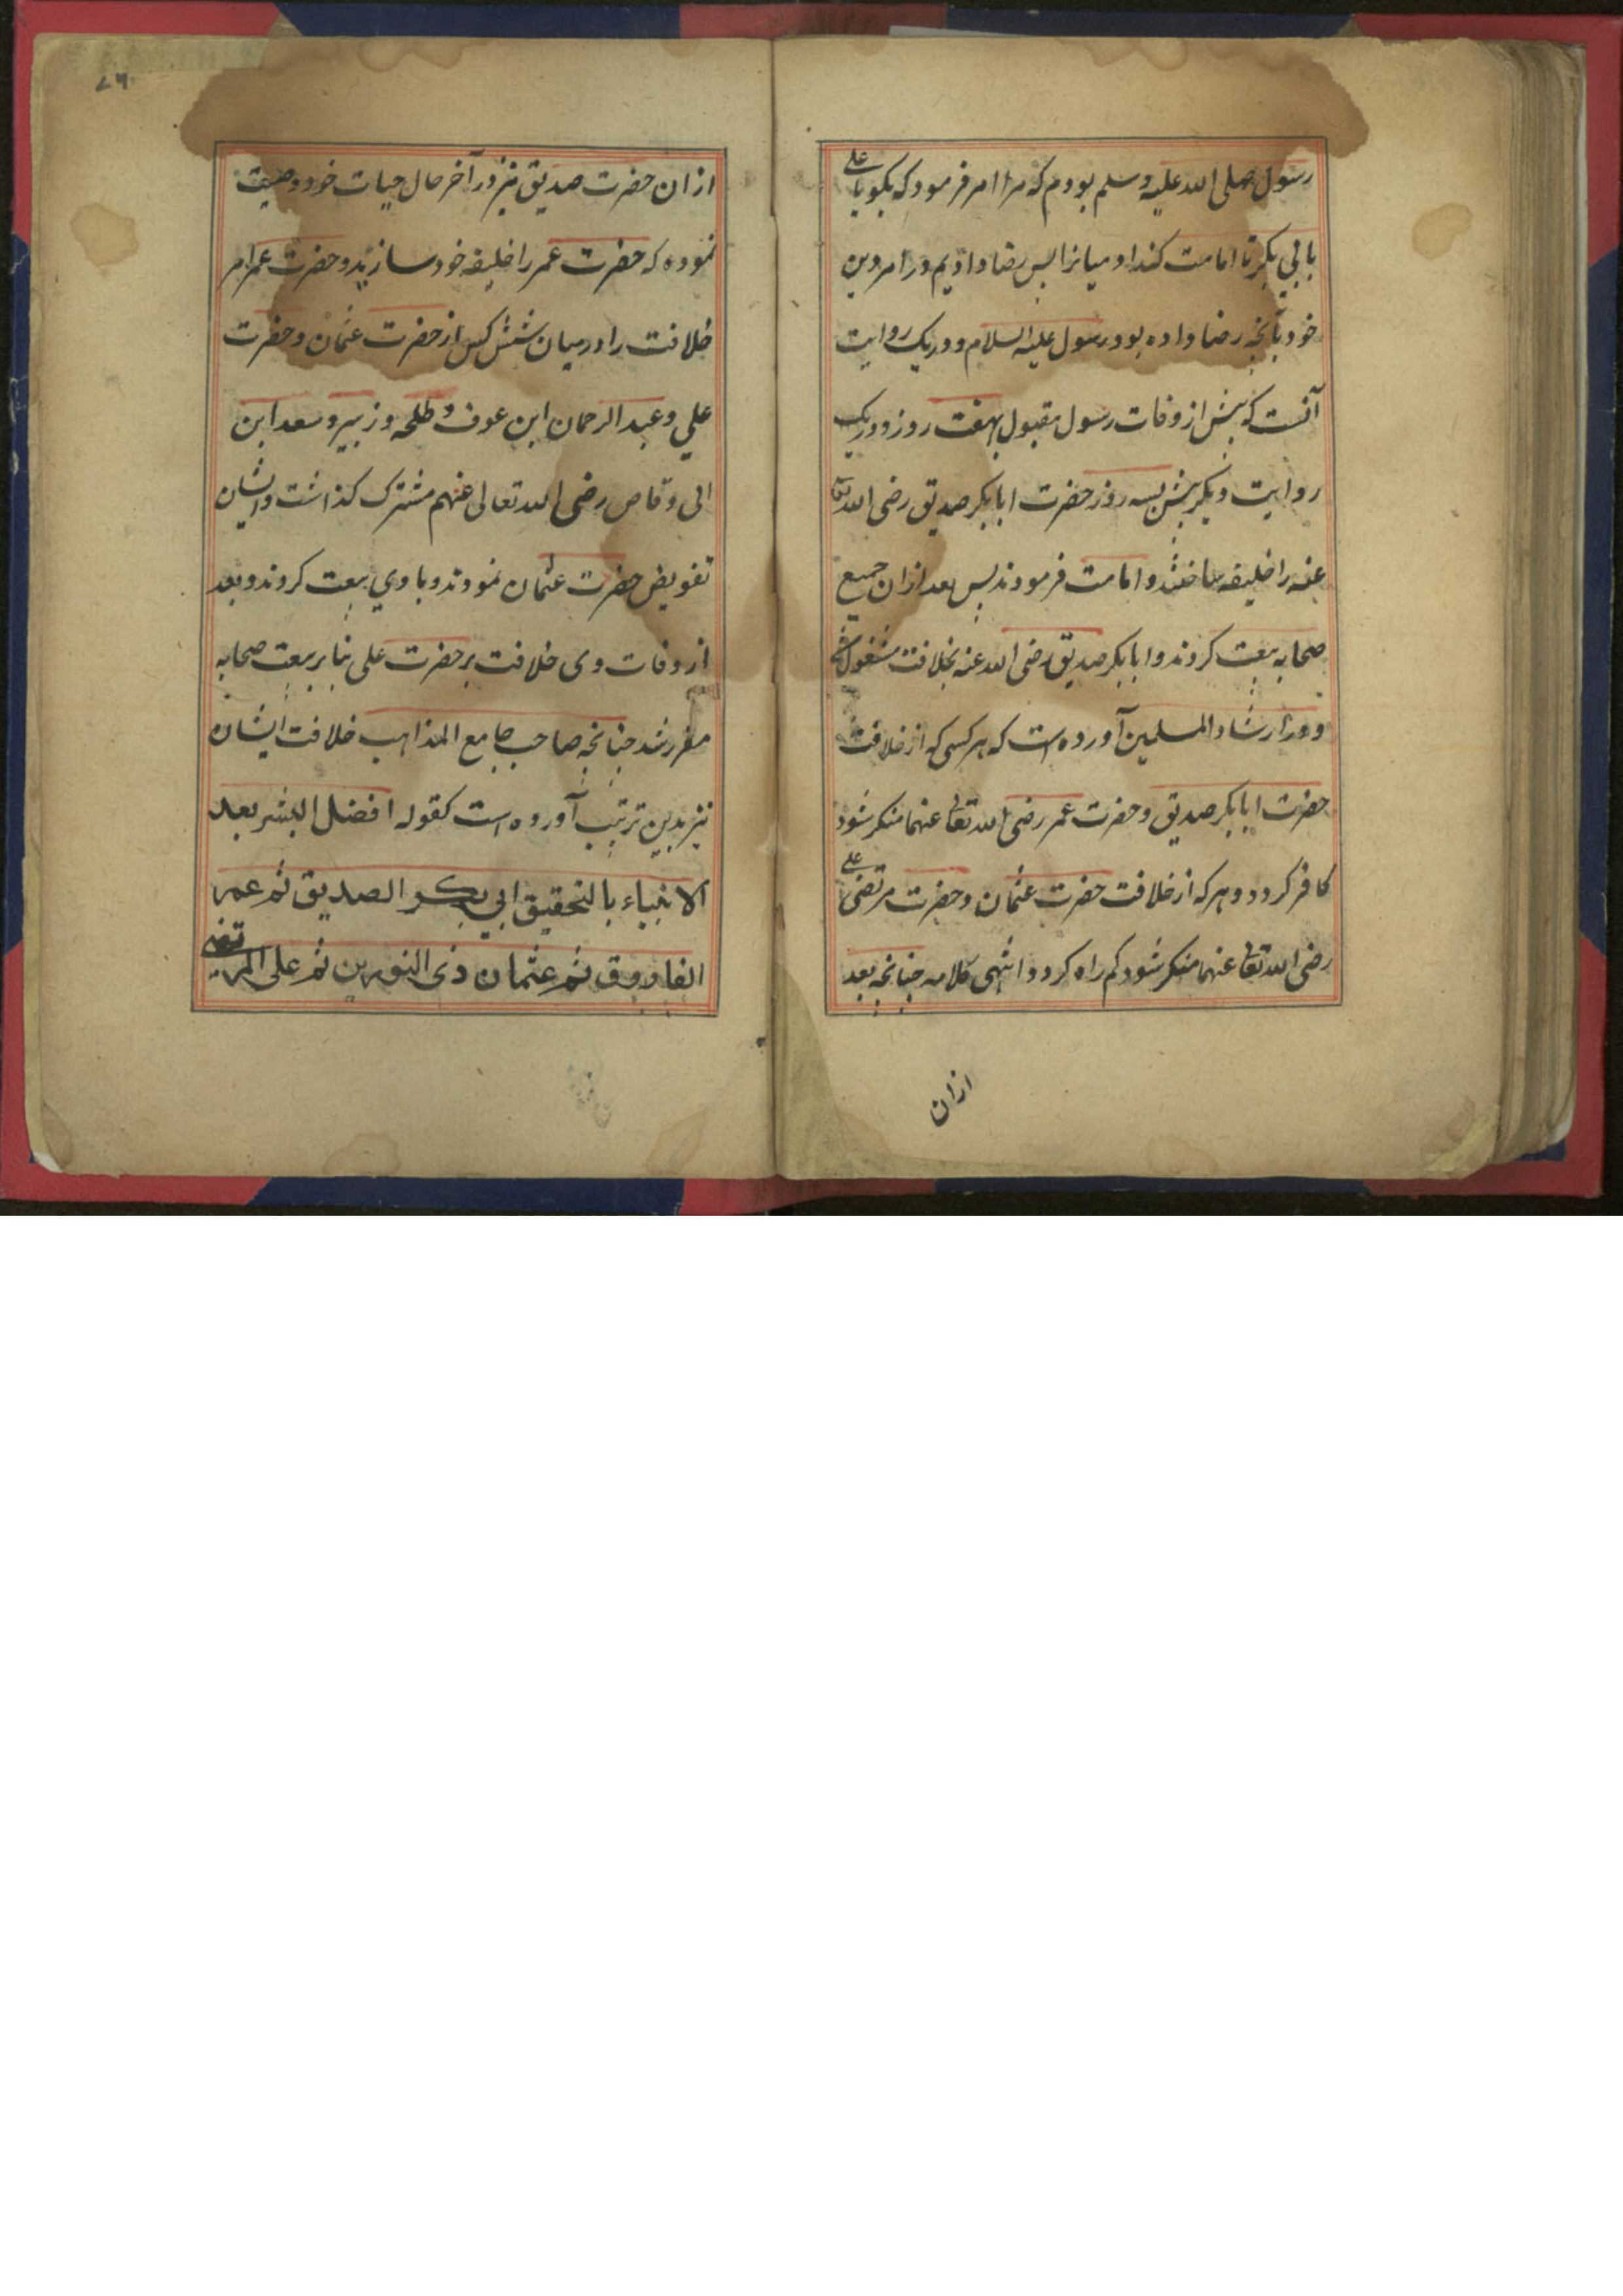 رسول صلی الله علیه وسلم بودم که مرا امر فرمود که بکو یا علی
بابی بکر تا امامت کند او میانرا پس رضا دادیم در امر دین
خود بآنچه رضا داده بود رسول علیه السلام و در یک روایت
آنست که پیش از وفات رسول مقبول بهفت روز و در یک
روایت دیکر پیش بسه روز حضرت ابابکر صدیق رضی الله تعا
عنه را خلیفه ساختند و امامت فرمودند پس بعد ازان جمیع
صحابه بیعت کردند و ابابکر صدیق رضی الله عنه بخلافت مشغول شد
و در ارشاد المسلمین آورده است که هر کسی که از خلافت
حضرت ابابکر صدیق و حضرت عمر رضی الله تعا عنهما منکر شود
کافر کردد و هر که از خلافت حضرت عثمان و حضرت مرتضی علی
رضی الله تعا عنهما منکر شود کم راه کردد انتهی کلامه چنانچه بعد
ازان
۶۷
ازان حضرت صدیق نیز در آخر حال حیات خود وصیت
نموده که حضرت عمر را خلیفه خود سازید و حضرت عمر امر
خلافت را در میان شش کس از حضرت عثمان و حضرت
علی و عبد الرحمان ابن عوف و طلحه و زبیر و سعد ابن
ابی وقاص رضی الله تعالی عنهم مشترک کذاشت و ایشان
تفویض حضرت عثمان نمودند و با وی بیعت کردند و بعد
از وفات وی خلافت بر حضرت علی بنا بر بیعت صحابه
مقرر شد چنانچه صاحب جامع المذاهب خلافت ایشان
نیز بدین ترتیب آورده است کقوله افضل البشر بعد
الانبیاء بالتحقیق ابی بکر الصدیق ثم عمر
الفاروق ثم عثمان ذی النورین ثم علی المرتضی